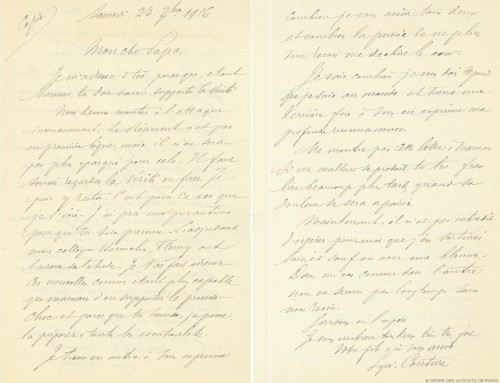 Copie
Samedi 23 7bre 1916
Mon cher Papa,
Je m'adresse à toi, parce que, étant
homme, tu dois savoir supporter la vérité.
Nous devons monter à l'attaque
incessamment. Le régiment n'est pas
en première ligne, mais il n'en sera
pas plus épargné pour cela. Il faut
savoir regarder la vérité en face, je
puis y rester. C'est pour ce cas que
je t'écris. J'ai pris mes précautions
pour que tu sois prévenu. L'adjudant
mon collègue Fleury ont
Je t'ai fait adresser
ces nouvelles comme étant plus capable
que maman d'en supporter le premier
choc et parce que tu sauras, je pense,
la préparer à toute éventualité.
Je tiens en outre à vous exprimer
combien je vous aime tous deux
et combien la pensée de ne plus
vous revoir me déchire le cœur.
Je sais combien je vous dois depuis
que je suis au monde et tiens une
dernière fois à vous en exprimer ma
profonde reconnaissance.
Ne montre pas cette lettre à maman
Si un malheur se produit, tu lui feras
lire beaucoup plus tard quand sa
douleur sera apaisée.
Maintenant, il n'est pas interdit
d'espérer pour moi que je sortirai
sain et sauf ou avec ma blessure.
Dans un cas comme dans l'autre
nous ne serons pas longtemps sans
nous revoir.
Gardons-en l'espoir
Je vous embrasse tous deux bien fort
Votre fils qui vous aime
Sign. Couture
© ORDRE DES AVOCATS DE PARIS